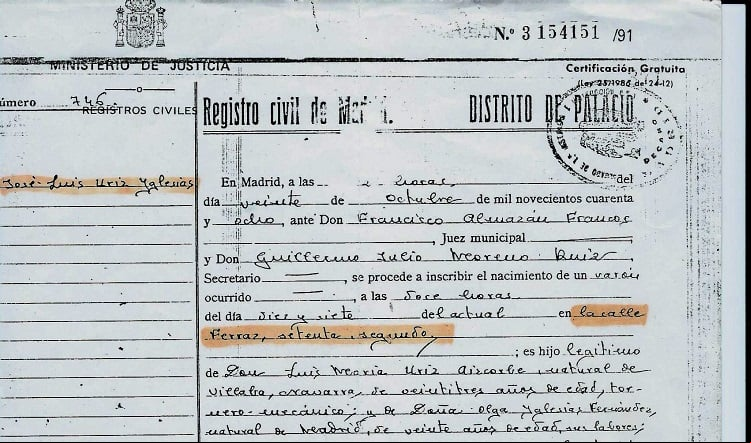 N.º 3 154151 /91
MINISTERIO DE JUSTICIA
Certificación Gratuita
(Ley 25/1986 de 24-12)
número 746.
REGISTROS CIVILES
Registro civil de Madrid.
DISTRITO DE PALACIO
José Luis Uriz Yglesias
En Madrid, a las horas del
día veinte de Octubre de mil novecientos cuarenta
y ocho, ante Don Francisco Almazán Francos
, Juez municipal
y Don Guillermo Julio Moreno Ruiz
Secretario , se procede a inscribir el nacimiento de un varón
ocurrido , a las doce horas
del día diez y siete del actual en la calle
Ferraz, setenta, segundo,
; es hijo legítimo
de Don Luis María Uriz Aizcorbe, natural de
Villaba, Navarra, de veintitres años de edad, tor-
nero-mecánico; y de Doña Olga Yglesias Fernández,
natural de Madrid, de veinte años de edad, sus labores;